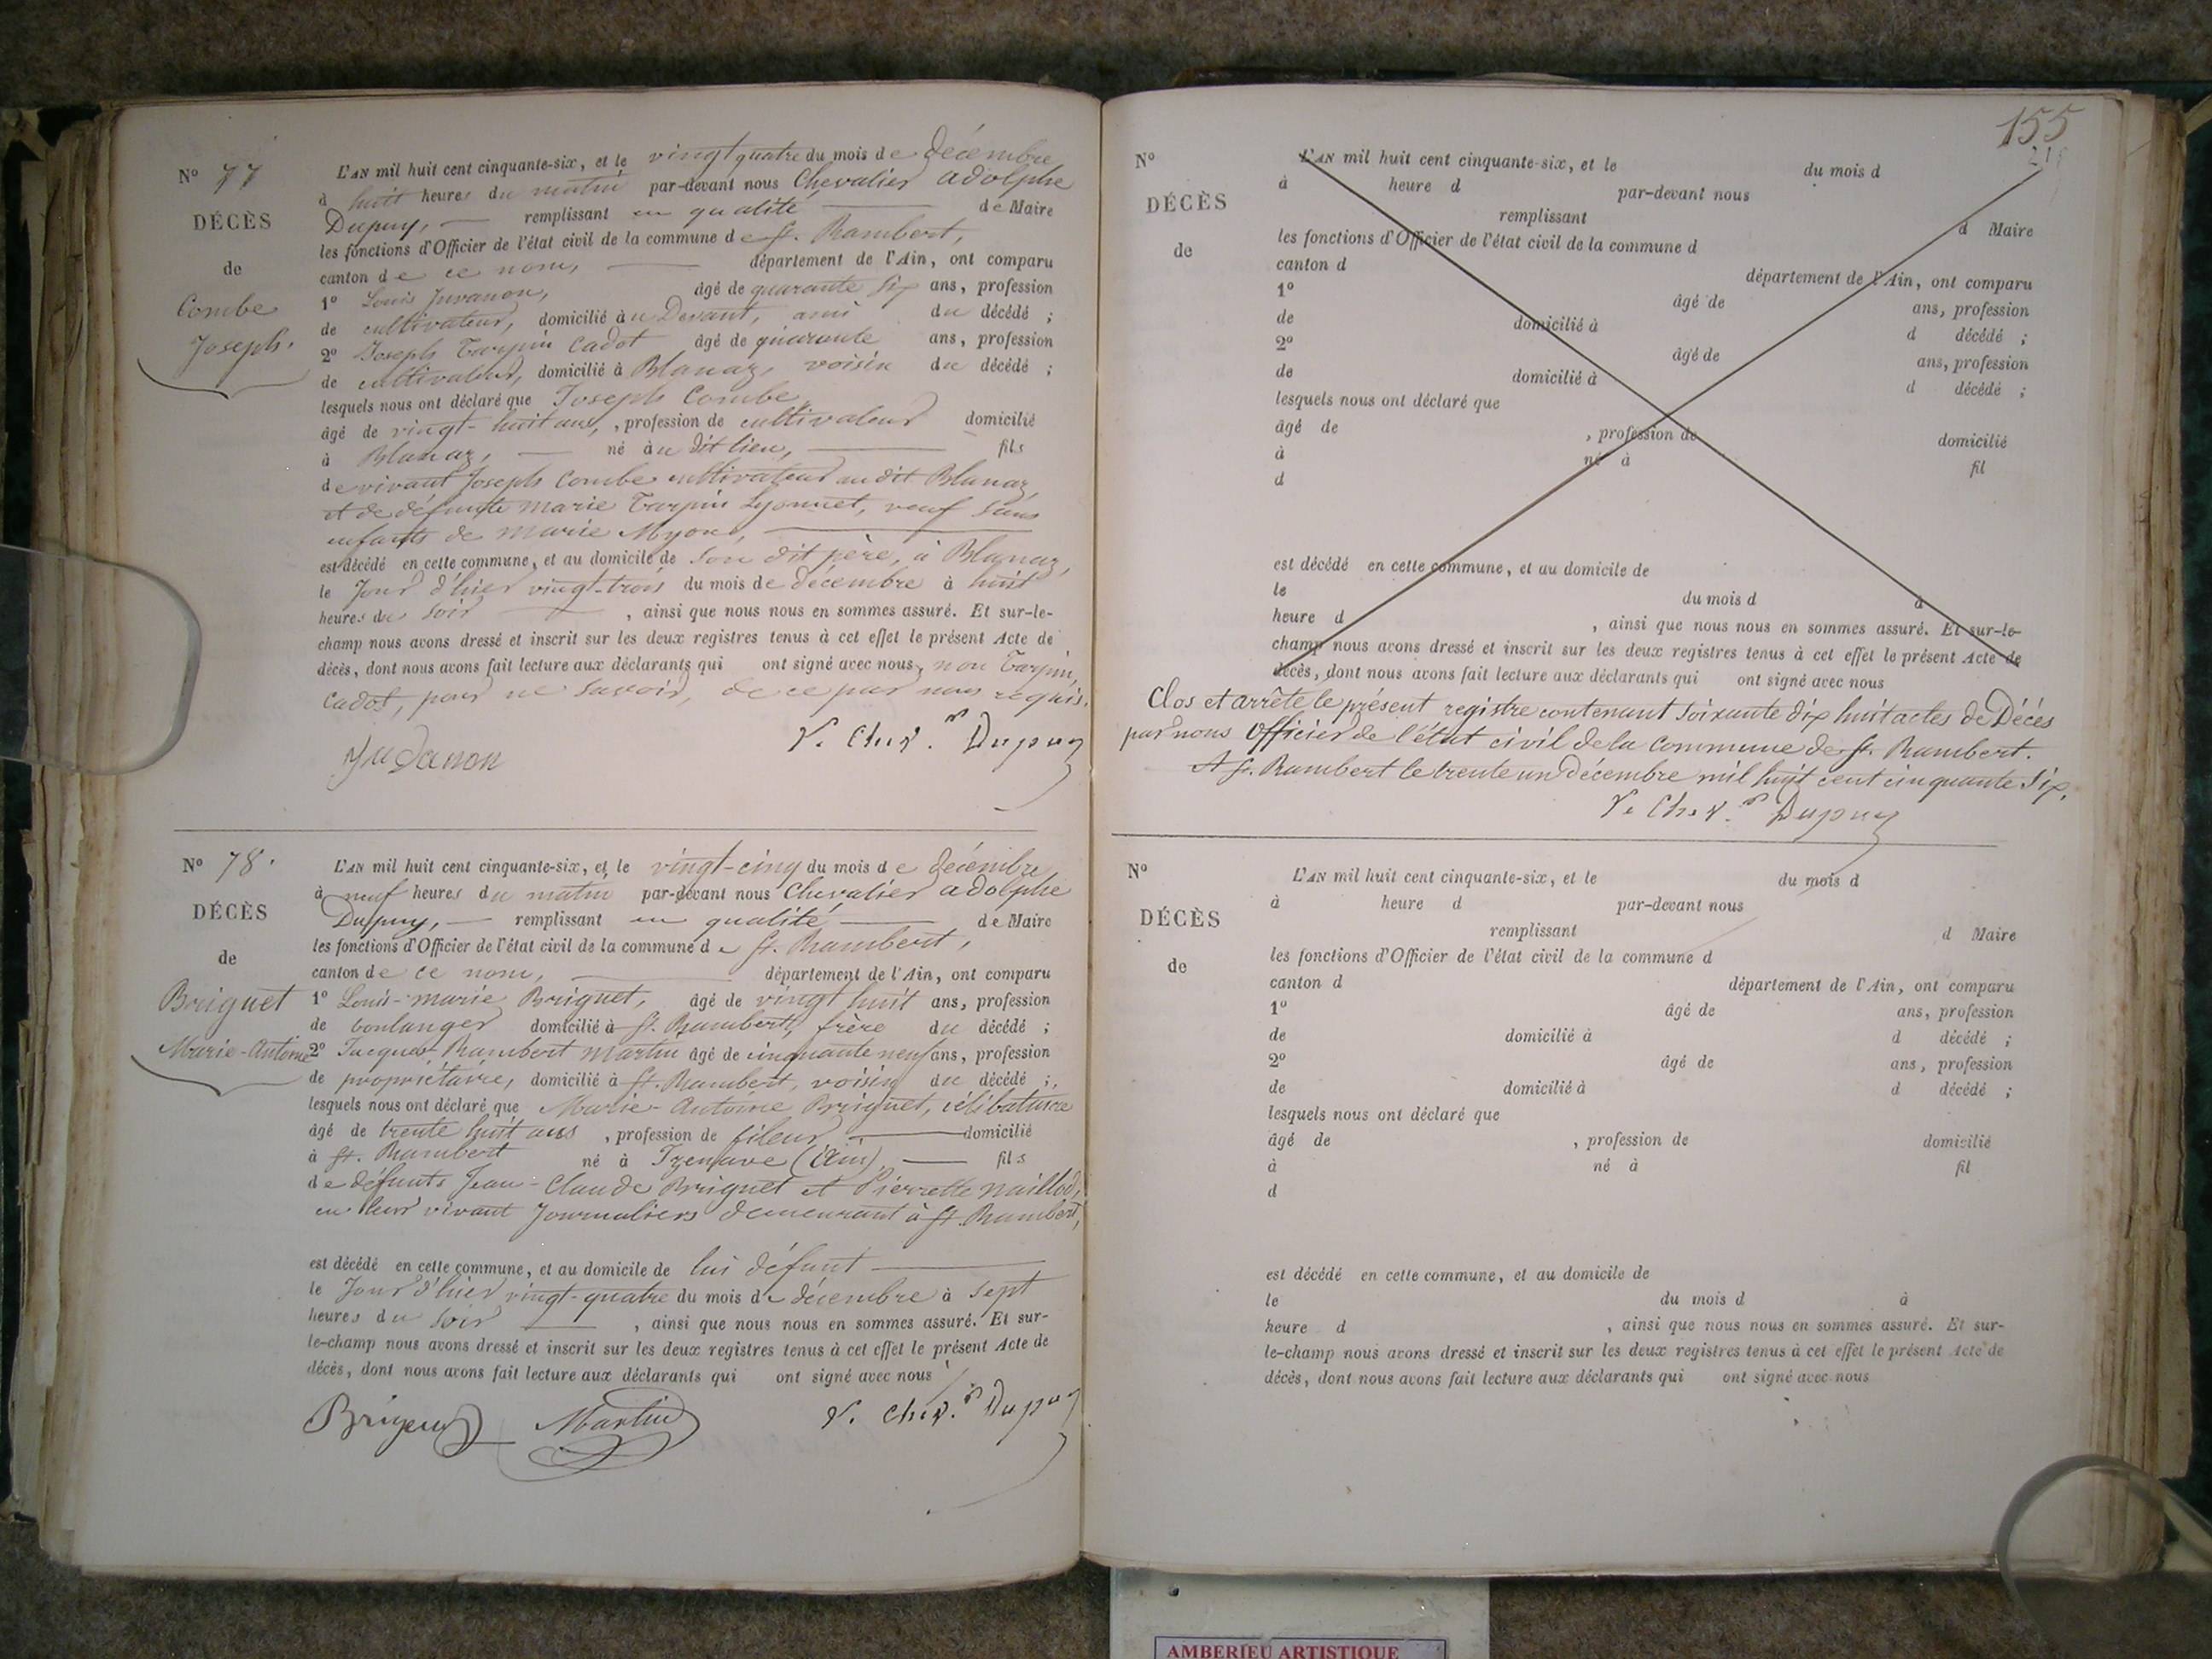 N° 77
DÉCÈS
de
Combe
Joseph.
L'AN mil huit cent cinquante-six, et le vingt quatre du mois de décembre
à huit heures du matin par-devant nous Chevalier Adolphe
Dupuy, remplissant en qualité de Maire
les fonctions d'Officier de l'état civil de la commune de St. Rambert,
canton de ce nom, département de l'Ain, ont comparu
1° Louis Juvanon, âgé de quarante six ans, profession
de cultivateur, domicilié au Devant, ami du décédé ;
2° Joseph Tarpin Cadot âgé de quarante ans, profession
de cultivateur, domicilié à Blanaz, voisin du décédé ;
lesquels nous ont déclaré que Joseph Combe
âgé de vingt-huit ans, , profession de cultivateur domicilié
à Blanaz, né au dit lieu, fils
de vivant Joseph Combe cultivateur audit Blanaz,
et de défunte Marie Tarpin Lyonnet, veuf sans
enfants de Marie Myon,
est décédé en cette commune, et au domicile de son dit père, à Blanaz,
le Jour d'hier vingt-trois du mois de décembre à huit
heures du soir , ainsi que nous nous en sommes assuré. Et sur-le-
champ nous avons dressé et inscrit sur les deux registres tenus à cet effet le présent Acte de
décès, dont nous avons fait lecture aux déclarants qui ont signé avec nous, non Tarpin
Cadot, pour ne savoir, de ce par nous requis.
Juvanon
V. Chev.er Dupuy
N° 78.
DÉCÈS
de
Briguet
Marie-Antoine
L'AN mil huit cent cinquante-six, et le vingt-cinq du mois de décembre
à neuf heures du matin par-devant nous Chevalier Adolphe
Dupuy, remplissant en qualité de Maire
les fonctions d'Officier de l'état civil de la commune de St. Rambert,
canton de ce nom, département de l'Ain, ont comparu
1° Louis-Marie Briguet, âgé de vingt huit ans, profession
de boulanger domicilié à St. Rambert, frère du décédé ;
2° Jacques-Rambert Martin âgé de cinquante neuf ans, profession
de propriétaire, domicilié à St. Rambert, voisin du décédé ;
lesquels nous ont déclaré que Marie-Antoine Briguet, célibataire
âgé de trente huit ans , profession de fileur domicilié
à St. Rambert né à Izenave (Ain), fils
de défunts Jean-Claude Briguet et Pierrette Maillod,
en leur vivant Journaliers demeurant à St. Rambert,
est décédé en cette commune, et au domicile de lui défunt
le Jour d'hier vingt-quatre du mois de décembre à sept
heures du soir , ainsi que nous nous en sommes assuré. Et sur-
le-champ nous avons dressé et inscrit sur les deux registres tenus à cet effet le présent Acte de
décès, dont nous avons fait lecture aux déclarants qui ont signé avec nous
Briguet Martin V. Chev.er Dupuy
155
N°
DÉCÈS
de
L'AN mil huit cent cinquante-six, et le du mois d
à heure d par-devant nous
remplissant d Maire
les fonctions d'Officier de l'état civil de la commune d
canton d département de l'Ain, ont comparu
1° âgé de ans, profession
de domicilié à d décédé ;
2° âgé de ans, profession
de domicilié à d décédé ;
lesquels nous ont déclaré que
âgé de , profession de domicilié
à né à fil
d
est décédé en cette commune, et au domicile de
le du mois d à
heure d , ainsi que nous nous en sommes assuré. Et sur-le-
champ nous avons dressé et inscrit sur les deux registres tenus à cet effet le présent Acte de
décès, dont nous avons fait lecture aux déclarants qui ont signé avec nous
Clos et arrêté le présent registre contenant soixante dix huit actes de Décès
par nous Officier de l'état civil de la commune de St. Rambert.
A St. Rambert le trente un décembre mil huit cent cinquante six.
V. Chev.er Dupuy
N°
DÉCÈS
de
L'AN mil huit cent cinquante-six, et le du mois d
à heure d par-devant nous
remplissant d Maire
les fonctions d'Officier de l'état civil de la commune d
canton d département de l'Ain, ont comparu
1° âgé de ans, profession
de domicilié à d décédé ;
2° âgé de ans, profession
de domicilié à d décédé ;
lesquels nous ont déclaré que
âgé de , profession de domicilié
à né à fil
d
est décédé en cette commune, et au domicile de
le du mois d à
heure d , ainsi que nous nous en sommes assuré. Et sur-
le-champ nous avons dressé et inscrit sur les deux registres tenus à cet effet le présent Acte de
décès, dont nous avons fait lecture aux déclarants qui ont signé avec nous
AMBERIEU ARTISTIQUE